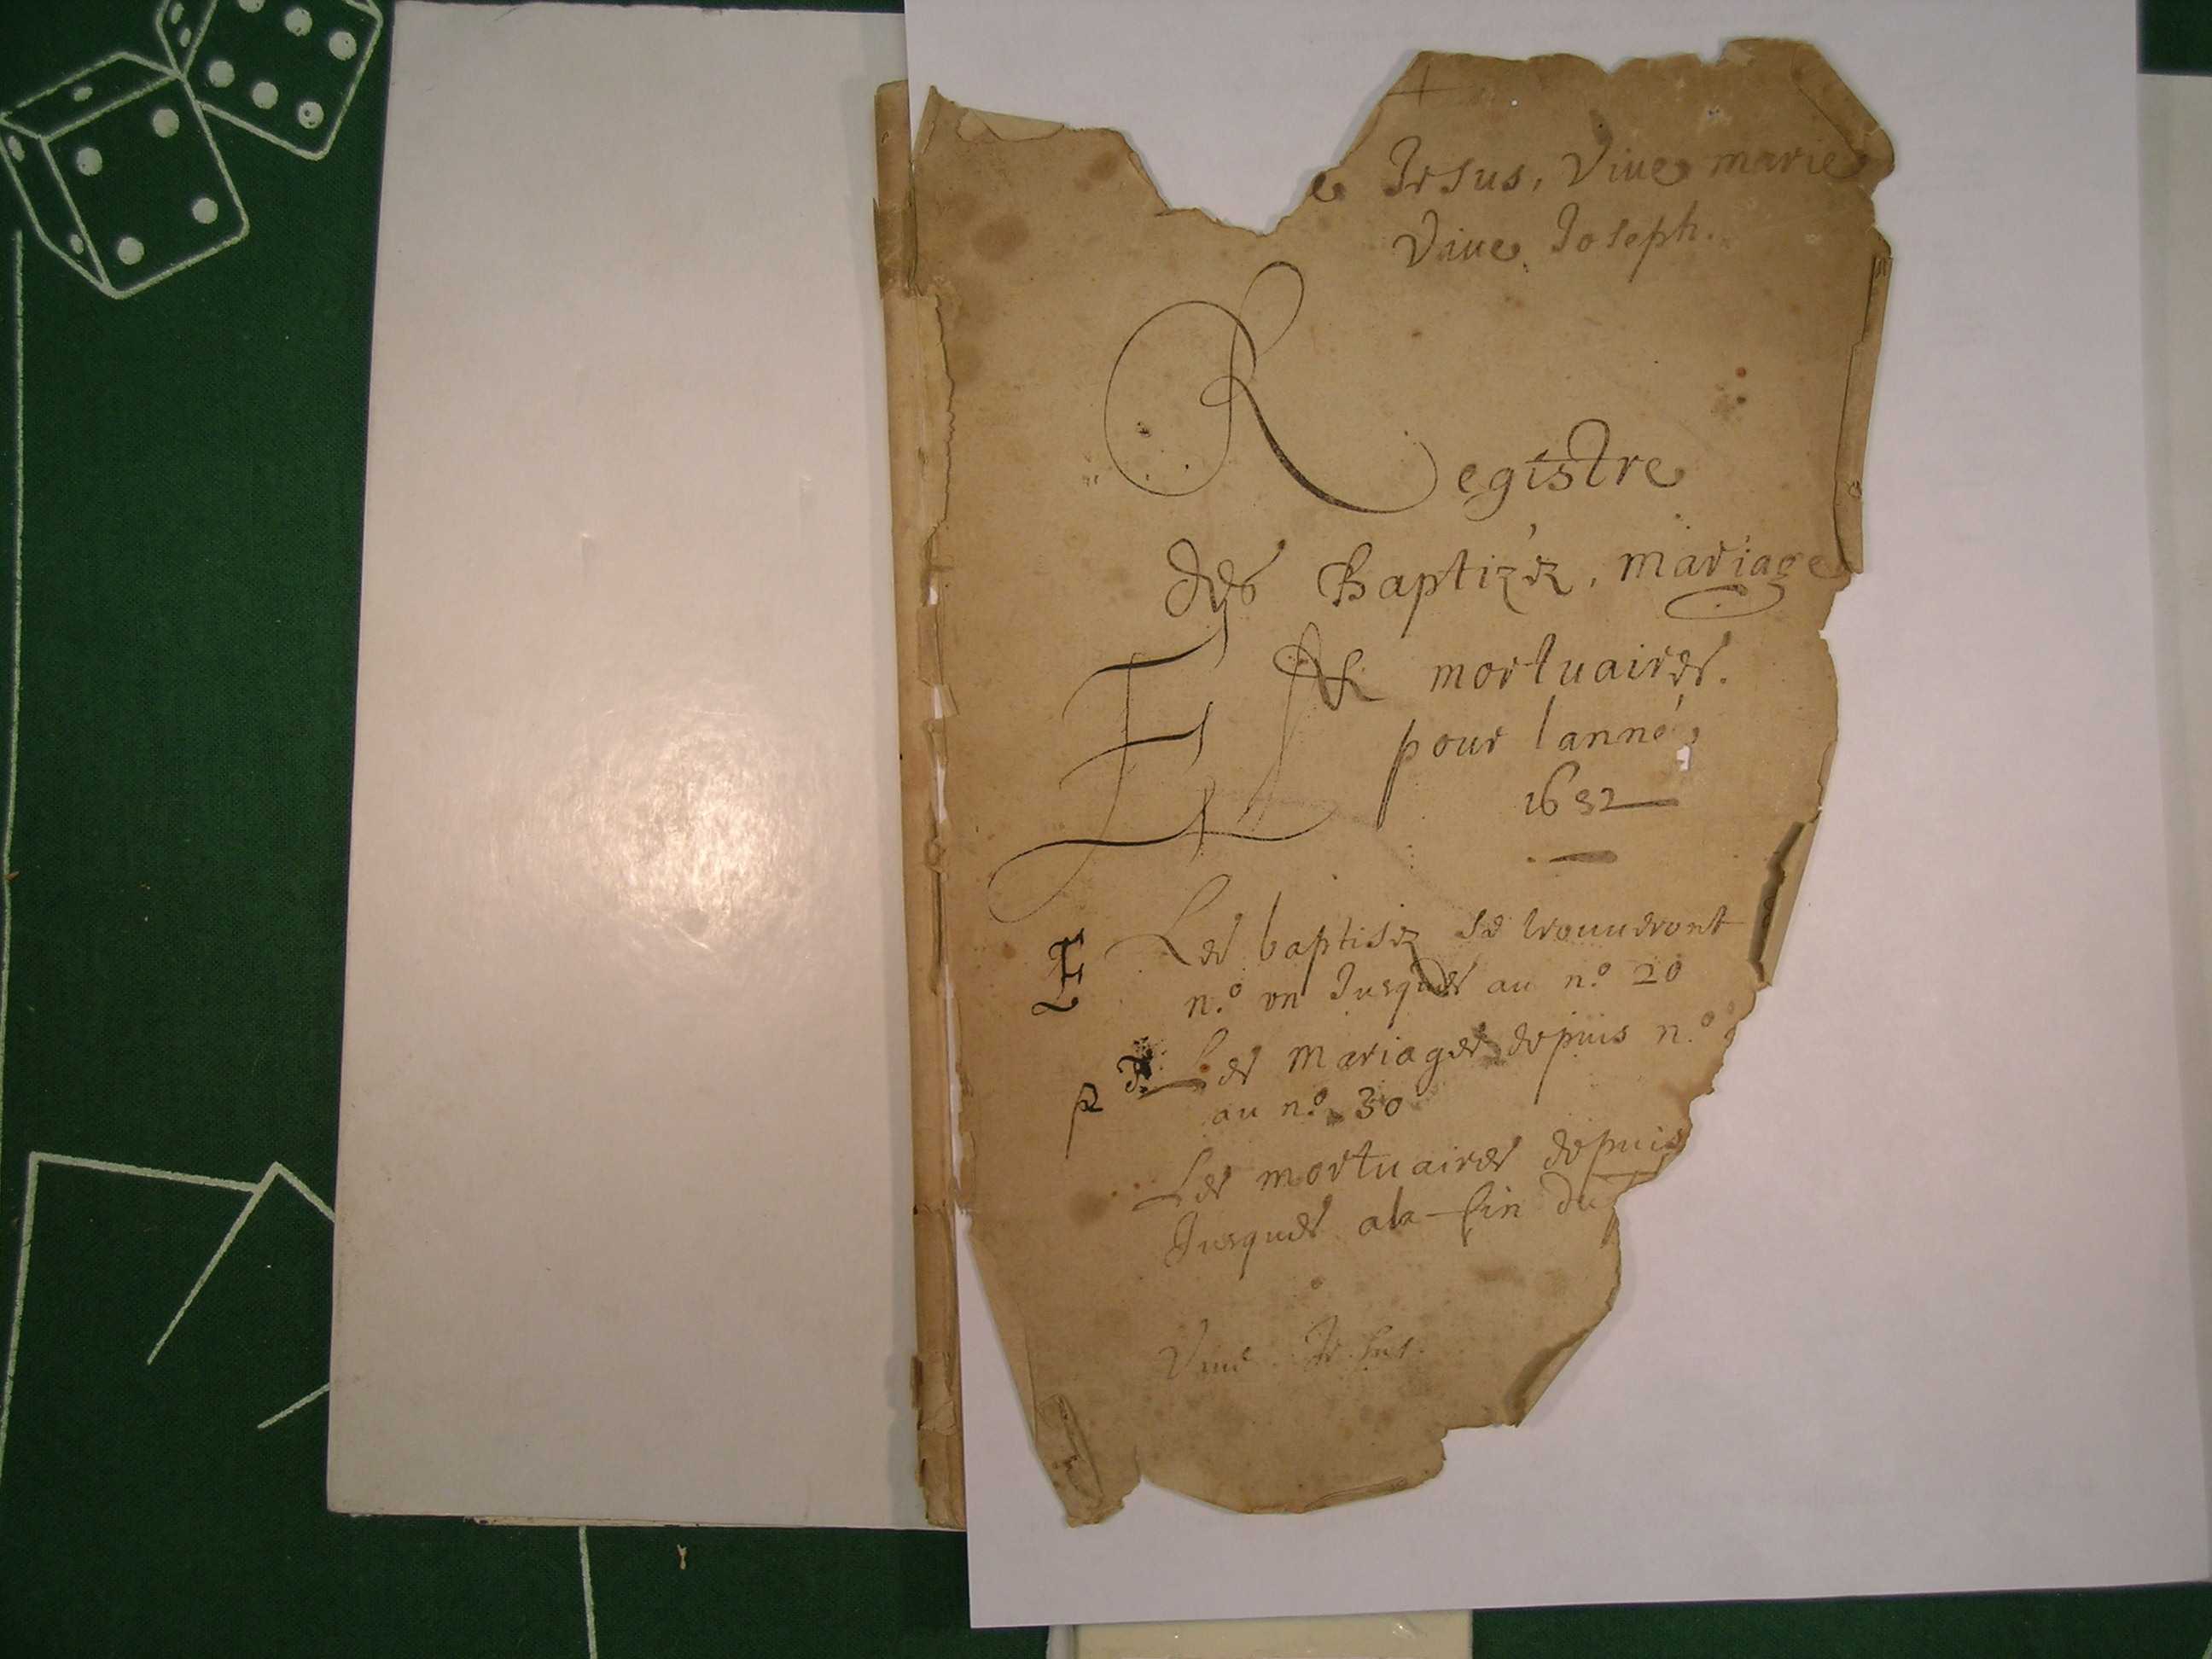 e Jesus, Viue marie
Viue Joseph.
Registre
des Baptizéz, mariage
Et mortuaires.
pour lannéé
1632
Les baptisez se trouueront
n.º vn Jusques au n.º 20
Les Mariages depuis n.º
au n.º 30
Les mortuaires depuis
Jusques ala fin du
Viue Jesus.